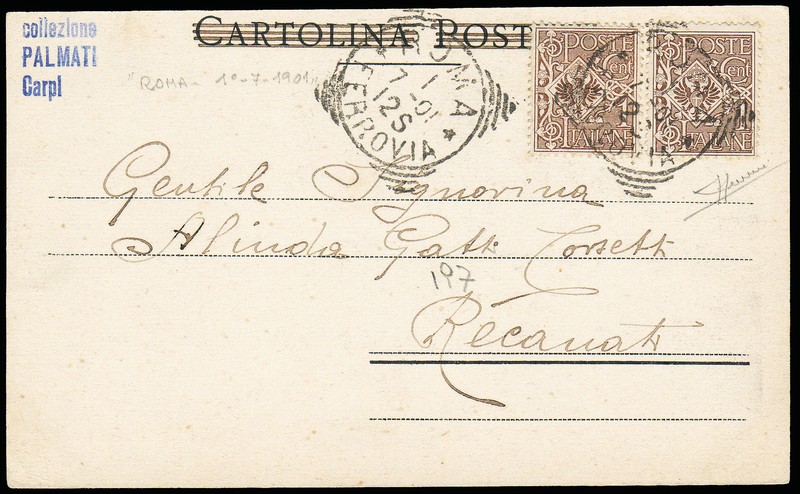 collezione
PALMATI
Carpi
CARTOLINA POST
"ROMA - 1°-7-1901"
ROMA
7-1
-01
12S
FERROVIA
POSTE
Cent
1
ITALIANE
POSTE
Cent
1
ITALIANE
Gentile Signorina
Alinda Gatti Corsetti
197
Recanati